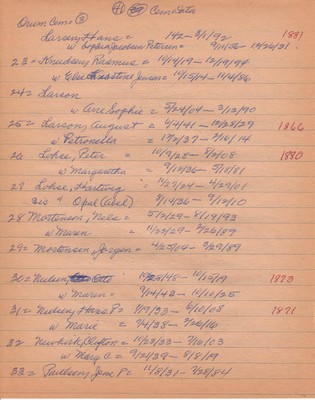 Cemo Data
Orum Cemo ③
Larsen, Hans = 142 - 3/1/92 1881
w Sophia Jacobsen Petersen = 9/11/56 - 10/26/31
23 = Knudsen, Rasmus = 10/14/19 - 12/19/94
w Else Kirstine Jensen = 10/15/14 - 11/4/86
24 = Larson
w Ane Sophie = 5/24/04 - 3/12/90
25 = Larson, August = 6/4/41 - 10/28/29 1866
w Petronella = 17/2/37 - 3/16/14
26 Lohse, Peter = 10/9/28 - 8/2/08 1880
w Margaretha = 9/10/26 - 5/18/81
27 Lohse, Hartvig = 4/27/24 - 4/29/01
sis & Opal (Abel) 9/14/36 - 9/12/10
28 Mortensen, Nels = 5/2/29 - 8/18/93
w Maren = 11/23/29 - 2/26/89
29 = Mortensen, Jorgen = 4/25/04 - 3/29/89
30 = Nielsen, Otto 10/25/48 - 10/15/19 1873
w Maren = 9/14/42 - 10/10/25
31 = Nielsen, Hans P = 1/19/33 - 6/10/08 1871
w Marie = 7/4/38 - 7/26/16
32 Newkirk, Clifton = 10/23/33 - 7/16/03
w Mary C = 9/24/39 - 8/8/19
33 = Paulsen, Jens P = 11/8/31 - 7/28/84